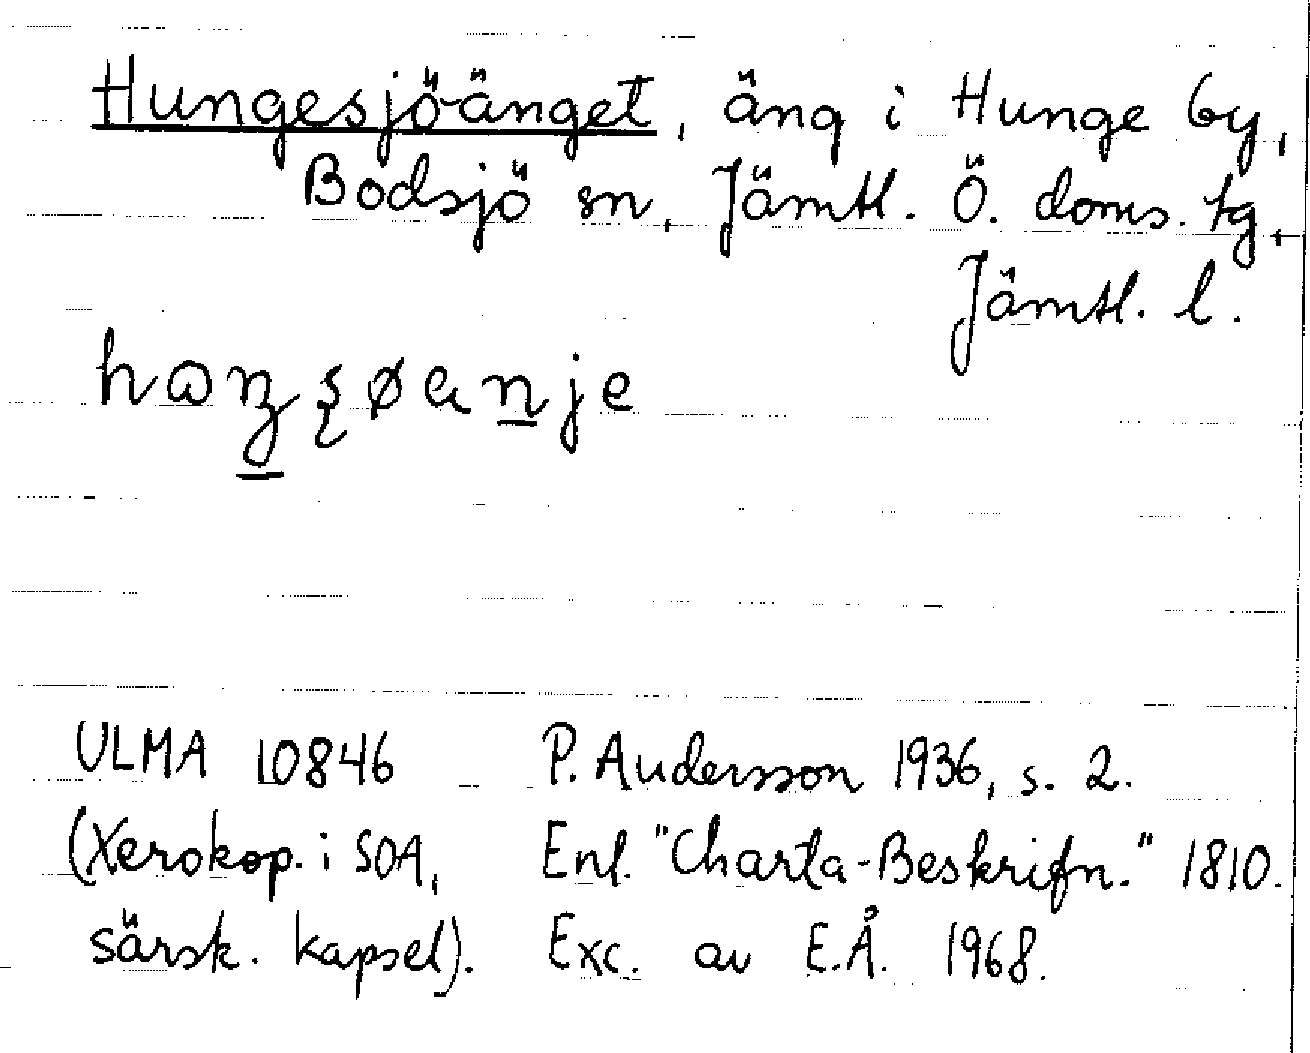 Hungesjöänget, äng i Hunge by,
Bodsjö sn, Jämtl. Ö. doms. tg
Jämtl. l.
ULMA 10846 P. Andersson 1936, s. 2.
(Xerokop. i SOA, Enl. "Charta-Beskrifn." 1810.
särsk. kapsel). Exc. av E.Å. 1968.